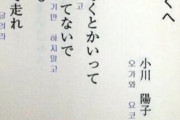 くへ
小川　陽子
오가와 요코
くとかいって
てないで
기만 하지말고
走れ
달려라